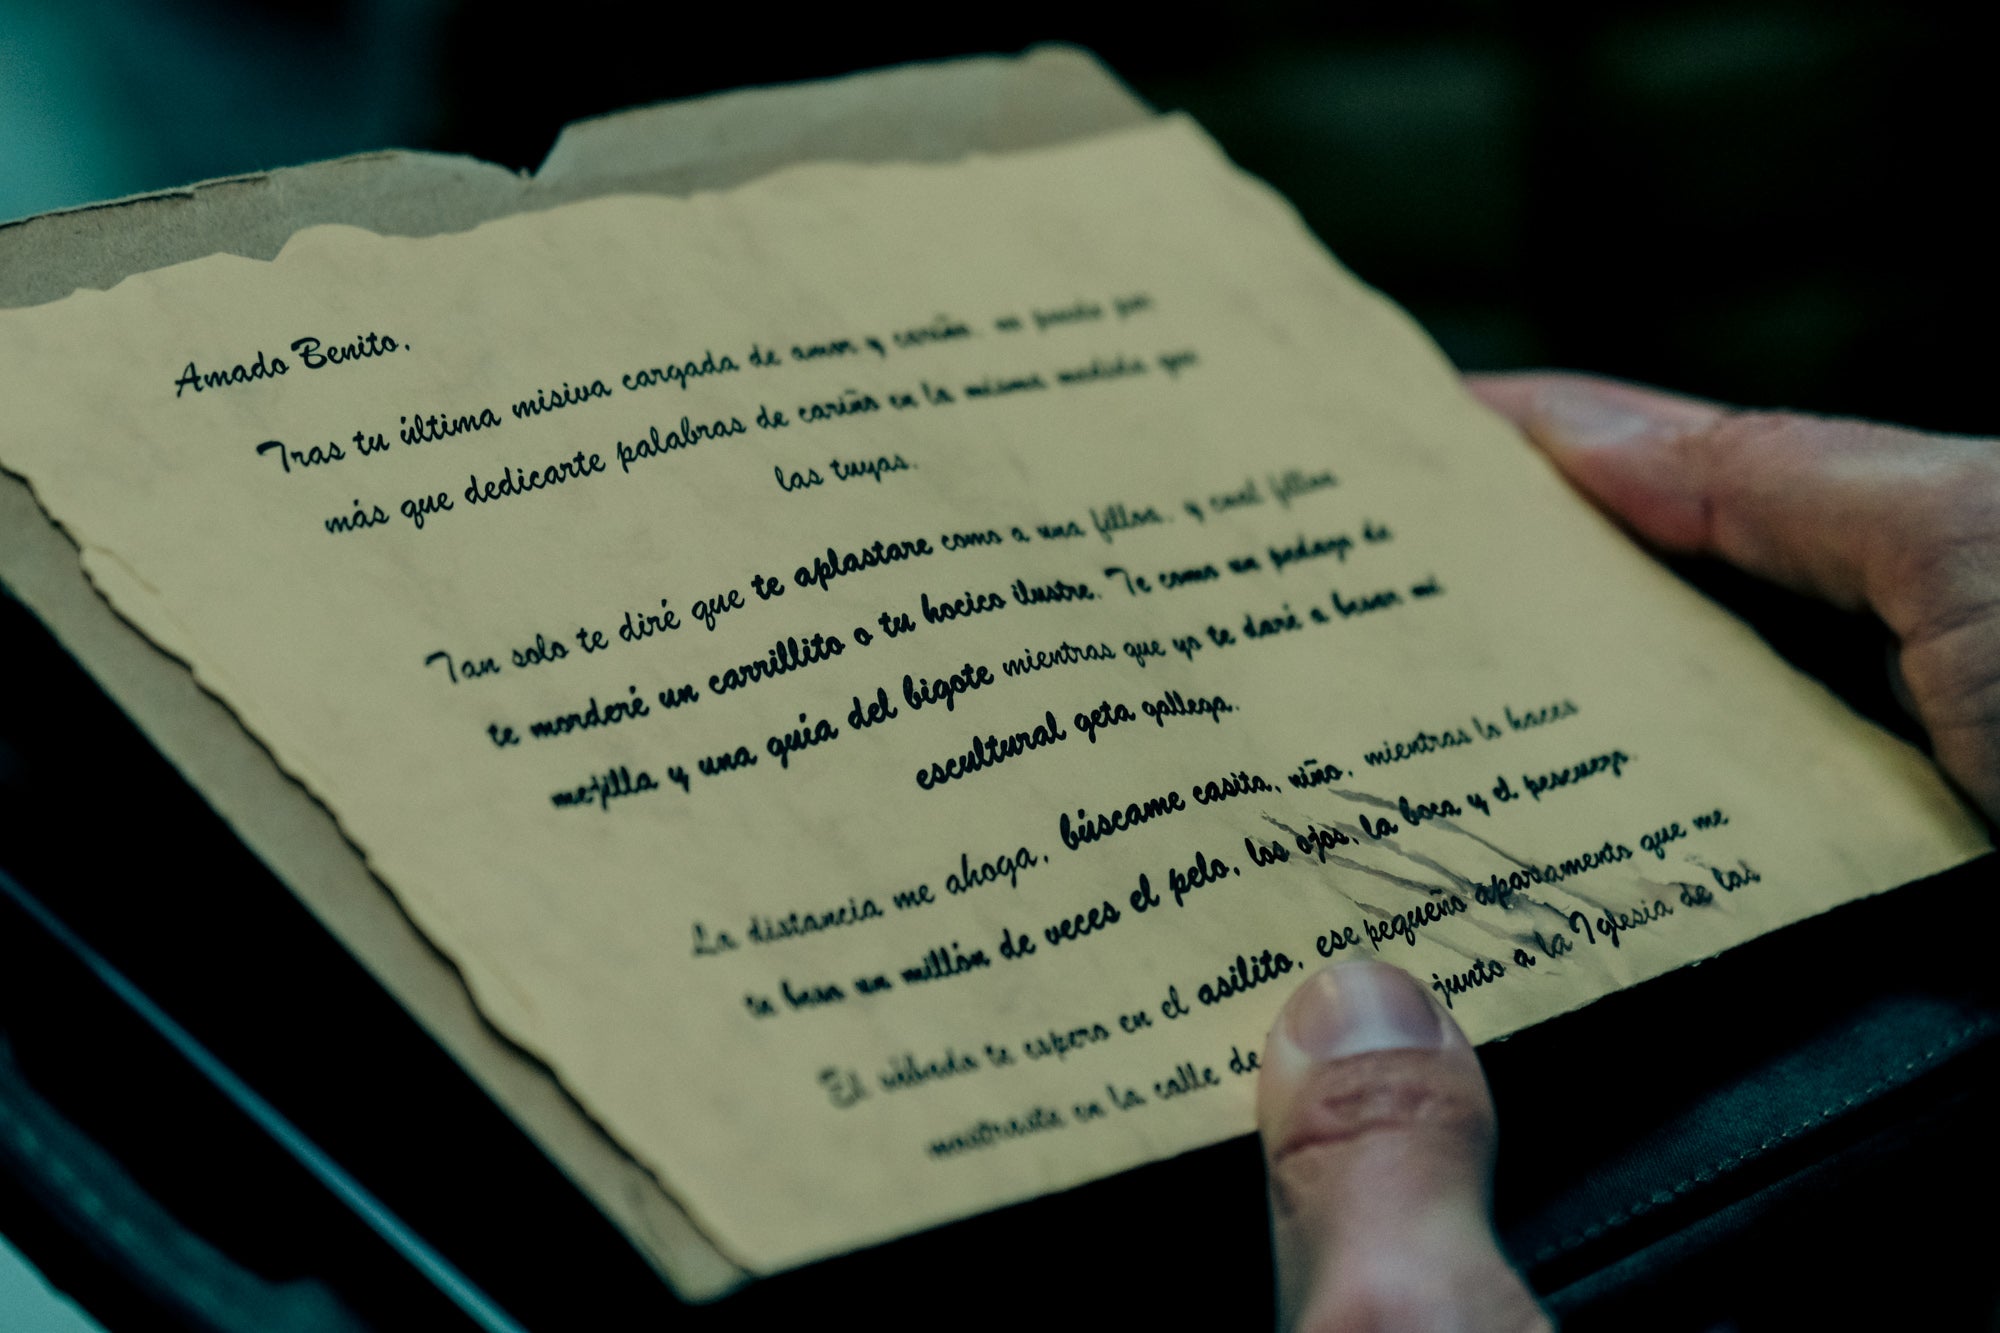 Amado Benito,
Tras tu última misiva cargada de amor y cariño, no puedo por
más que dedicarte palabras de cariño en la misma medida que
las tuyas.
Tan solo te diré que te aplastare como a una filloa, y cual filloa
te morderé un carrillito o tu hocico ilustre. Te como un pedazo de
mejilla y una guía del bigote mientras que yo te daré a besar mi
escultural geta gallega.
La distancia me ahoga, búscame casita, niño, mientras lo haces
te beso un millón de veces el pelo, los ojos, la boca y el pescuezo.
El sábado te espero en el asilito, ese pequeño apartamento que me
mostraste en la calle de junto a la Iglesia de las